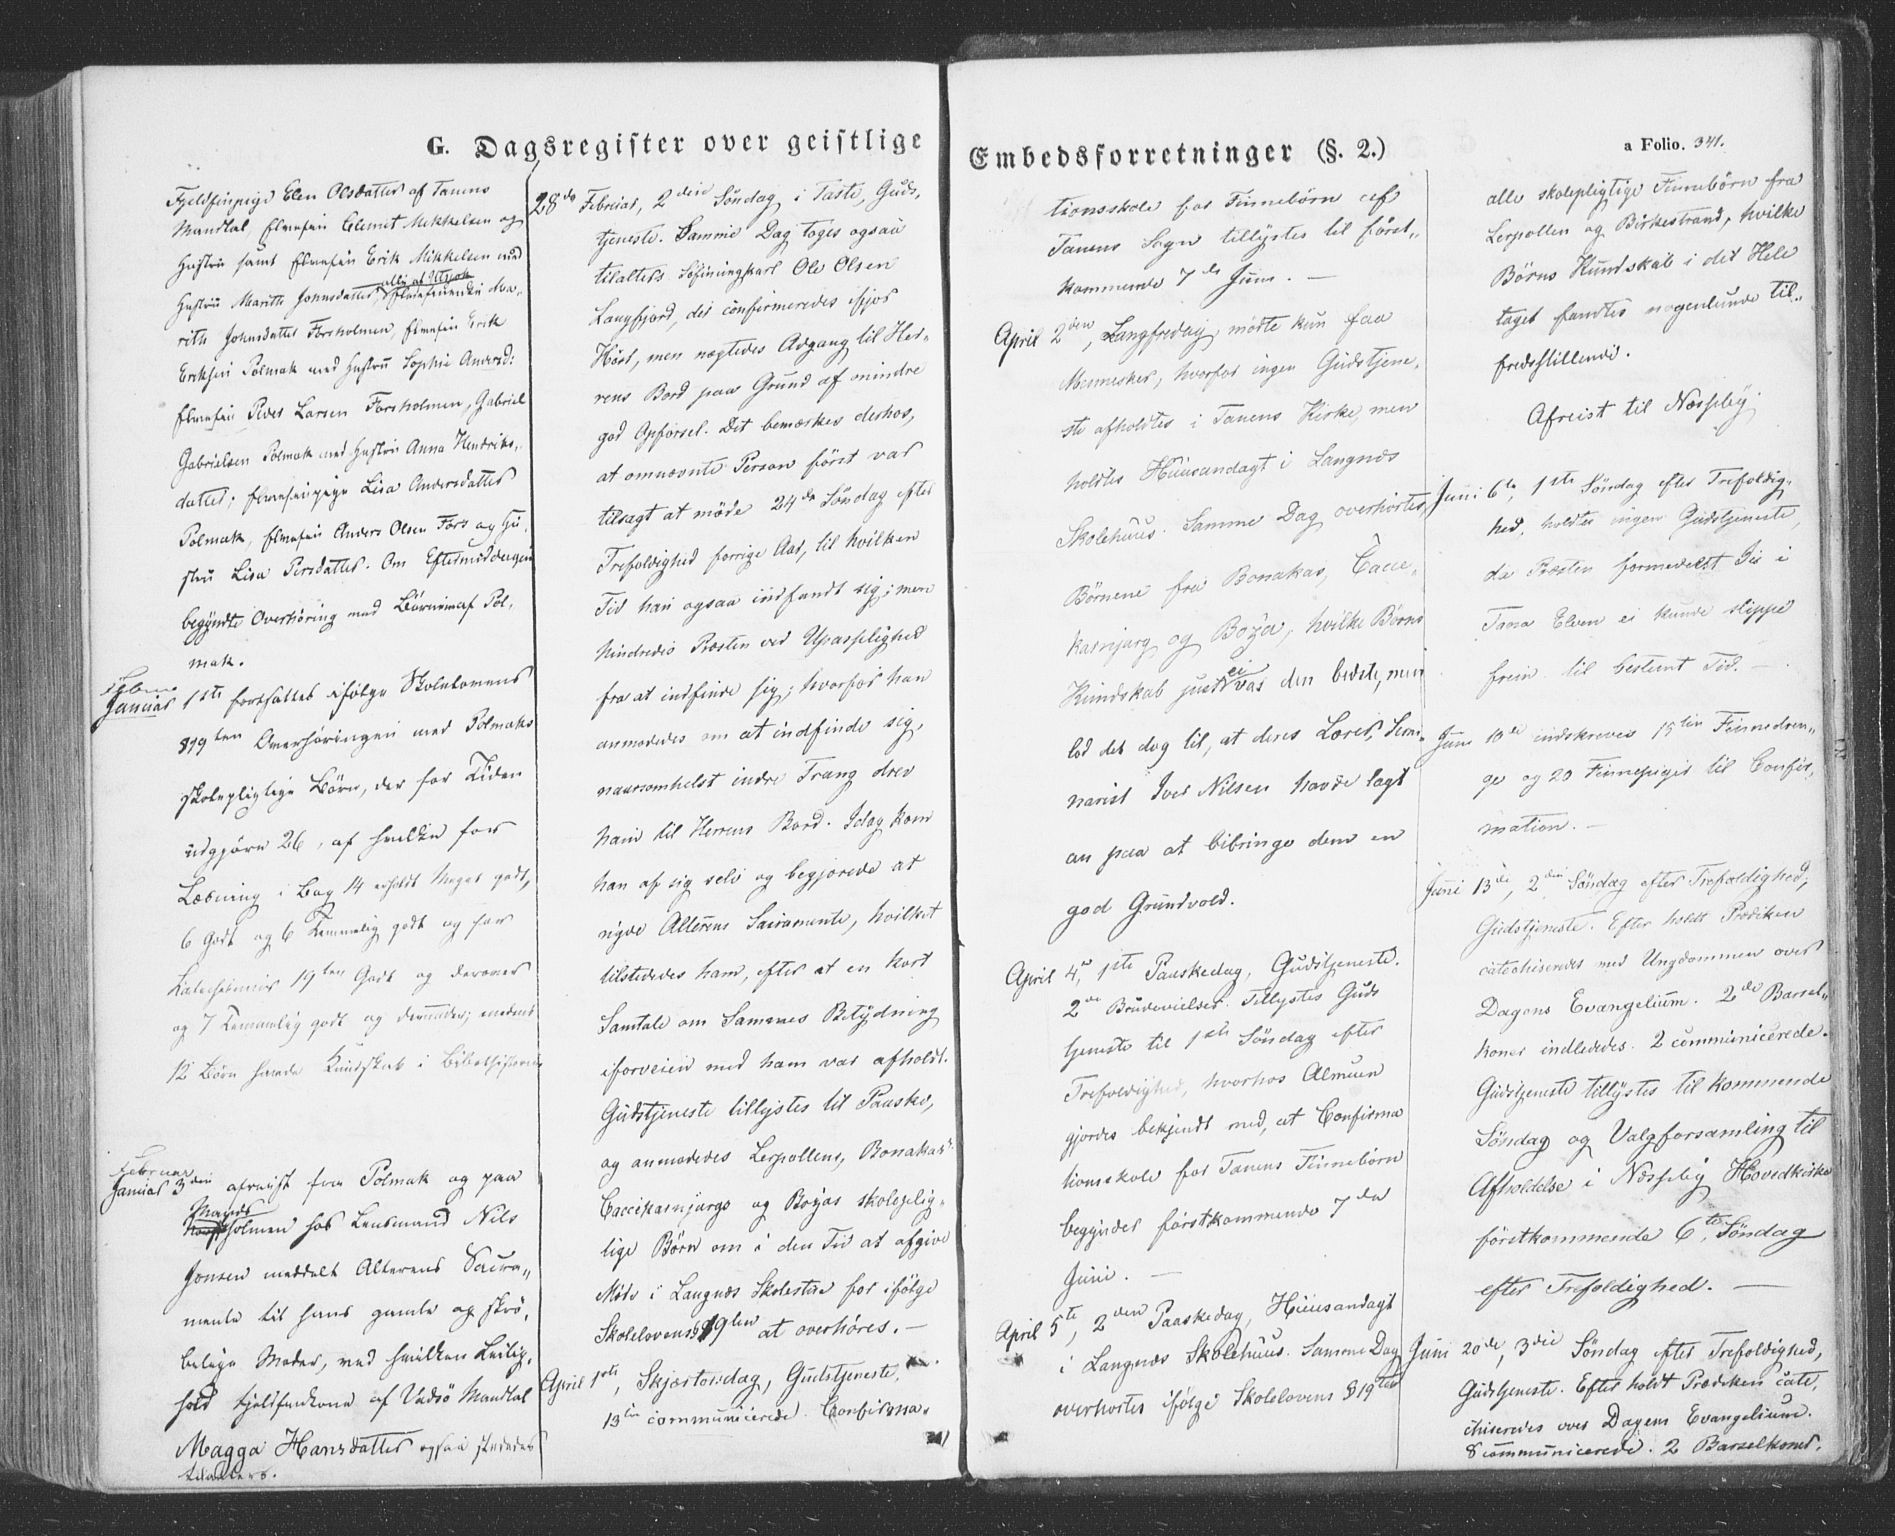 G. Dagsregister over geistlige
Fjeldfinpige Elen Olsdatter af Tanens
Mandtal, Elvefin Clemit Mikkelsen og
Hustru samt Elvefin Erik Mikkelsen med
alle af Polmak
Hustru Marith Johnsdatter, Elvefinenke Ma-
rith Johnsdatter Forsholmen, Elvefin Erik
Eriksen Polmak med Hustru Sophie Andersd:
Elvefin Peder Larsen Forsholmen, Gabriel
Gabrielsen Polmak med Hustru Anna Hendriks-
datter; Elvefinpige Lisa Andersdatter
Polmak, Elvefin Anders Olsen Fors og Hu-
stru Lisa Persdatter. Om Eftermiddagen
begyndte Overhøring med Børnene af Pol-
mak.
Februar
Januar 1ste fortsattes ifølge Skolelovens
§19ten Overhøringen med Polmaks
skolepligtige Børn, der for Tiden
udgjøre 26, af hvilke for
Læsning i Bog 14 erholdt Meget godt,
6 Godt og 6 Temmelig godt og for
Katechismus 19ten Godt og derover
og 7 Temmelig godt og derunder; medens
12 Børn havde Kundskab i Bibelhistorie
Februar
Januar 3die afreist fra Polmak og paa
Mands
holmen hos Lensmand Nils
Jonsen meddelt Alterens Sacra-
mente til hans gamle og skrø-
belige Moder, ved hvilken Leilig-
hed Fjeldfinkone af Vadsö Mandtal
Magga Hansdatter ogsaa stededes
tilalters.
28de Februar, 2den Søndag i Faste, Guds-
tjeneste. Samme Dag toges ogsaa
tilalters Søfinungkarl Ole Olsen
Langfjord, der confirmeredes ifjor
Høst, men nægtedes Adgang til Her-
rens Bord paa Grund af mindre
god Opførsel. Det bemærkes derhos,
at omnævnte Person først var
tilsagt at møde 24de Søndag efter
Trefoldighed forrige Aar, til hvilken
Tid han ogsaa indfandt sig; men
hindredes Præsten ved Upasselighed
fra at indfinde sig; hvorfor han
anmodedes om at indfinde sig,
naarsomhelst indre Trang drev
ham til Herrens Bord. Idag kom
han af sig selv og begjærede at
nyde Alterens Sacramente, hvilket
tilstededes ham, efter at en kort
Samtale om Sammes Betydning
iforveien med ham var afholdt.
Gudstjeneste tillystes til Paaske,
og anmodedes Lerpollens, Bonakas
Caccekarnjargs og Bozas skoleplig-
tige Børn om i den Tid at afgive
Møde i Langnæs Skolestue for ifølge
Skolelovens §19ten at overhøres. —
April 1ste, Skjærtorsdag, Gudstjeneste,
13ten communicerede. Confirma-
Embedsforretninger (§. 2.)
a Folio. 341.
tionsskole for Finnebørn af
Tanens Sogn tillystes til først-
kommende 7de Juni. —
April 2den, Langfredag, mødte kun faa
Mennesker, hvorfor ingen Gudstjene-
ste afholdtes i Tanens Kirke, men
holdtes Huusandagt i Langnæs
Skolehuus. Samme Dag overhørtes
Børnene fra Bonakas, Cacce-
karnjarg og Boza, hvilke Børns
ei
Kundskab just var den bedste, men
lod det dog til, at deres Lærer, Semi-
narist Iver Nilsen havde lagt
an paa at bibringe dem en
god Grundvold.
April 4de, 1ste Paaskedag, Gudstjeneste.
2de Brudevielser. Tillystes Guds
tjeneste til 1ste Søndag efter
Trefoldighed, hvorhos Almuen
gjordes bekjendt med, at Confirma
tionsskole for Tanens Finnebørn
begynder førstkommende 7de
Juni. —
April 5te, 2den Paaskedag, Huusandagt
i Langnæs Skolehuus. Samme Dag
overhørtes ifølge Skolelovens §19ten
alle skolepligtige Finnebørn fra
Lerpollen og Birkestrand, hvilke
Børns Kundskab i det Hele
taget fandtes nogenlunde til-
fredsstillende.
Afreist til Næsseby.
Juni 6te, 1ste Søndag efter Trefoldig-
hed, holdtes ingen Gudstjeneste,
da Præsten formedelst Iis i
Tana Elven ei kunde slippe
frem til bestemt Tid. —
Juni 10de indskreves 15ten Finnedren-
ge og 20 Finnepiger til Confir-
mation. —
Juni 13de, 2den Søndag efter Trefoldighed,
Gudstjeneste. Efter holdt Prædiken
catechiseredes med Ungdommen over
Dagens Evangelium. 2de Barsel-
koner indlededes. 2 communicerede.
Gudstjeneste tillystes til kommende
Søndag og Valgforsamling til
Afholdelse i Næsseby Hovedkirke
førstkommende 6te Søndag
efter Trefoldighed. —
Juni 20de, 3die Søndag efter Trefoldighed,
Gudstjeneste. Efter holdt Prædiken cate-
chiseredes over Dagens Evangelium.
8 communicerede. 2 Barselkoner.